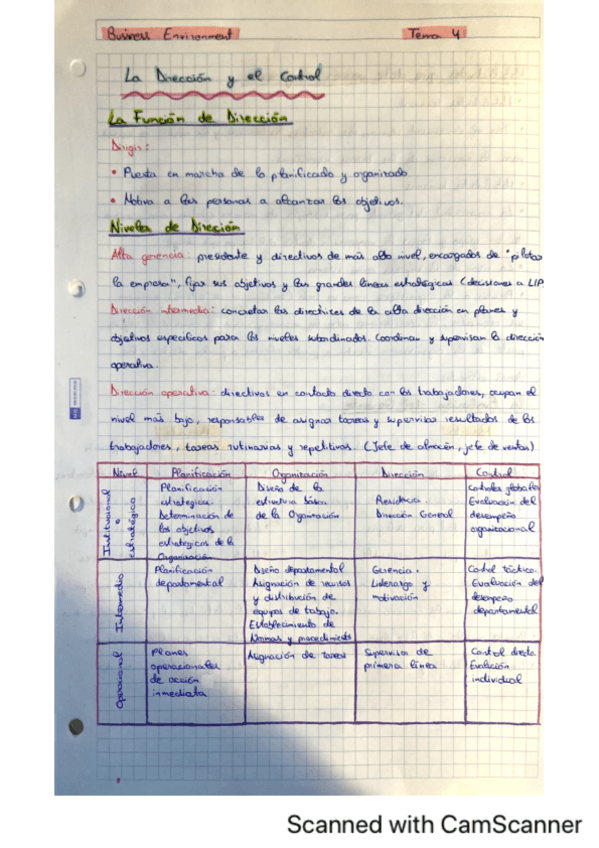 Business Environment Tema 4
La Dirección y el Control
La Función de Dirección
Dirigir:
• Puesta en marcha de lo planificado y organizado
• Motiva a las personas a alcanzar los objetivos.
Niveles de Dirección
Alta gerencia: presidente y directivos de más alto nivel, encargados de "pilotar
la empresa", fijar sus objetivos y las grandes líneas estratégicas (decisiones a L/P.
Dirección intermedia: concretar las directrices de la alta dirección en planes y
objetivos específicos para los niveles subordinados. Coordinan y supervisan la dirección
operativa.
Dirección operativa: directivos en contacto directo con los trabajadores, ocupan el
nivel más bajo, responsables de asignar tareas y supervisar resultados de los
trabajadores, tareas rutinarias y repetitivas. (Jefe de almacén, jefe de ventas)
Nivel Planificación Organización Dirección Control
Institucional
o
estratégico
Planificación
estratégica.
Determinación de
los objetivos
estratégicos de la
Organización
Diseño de la
estructura básica
de la Organización
Dirección General
Controles globales
Evaluación del
desempeño
organizacional
Intermedio
Planificación
departamental
Diseño departamental
Asignación de recursos
y distribución de
equipos de trabajo.
Establecimiento de
Normas y procedimients
Gerencia.
Liderazgo y
motivación
Control táctico.
Evaluación del
desempeño
departamental
Operacional
Planes
operacionales
de acción
inmediata
Asignación de tareas
Supervisor de
primera línea
Control directo.
Evalución
individual
Scanned with CamScanner